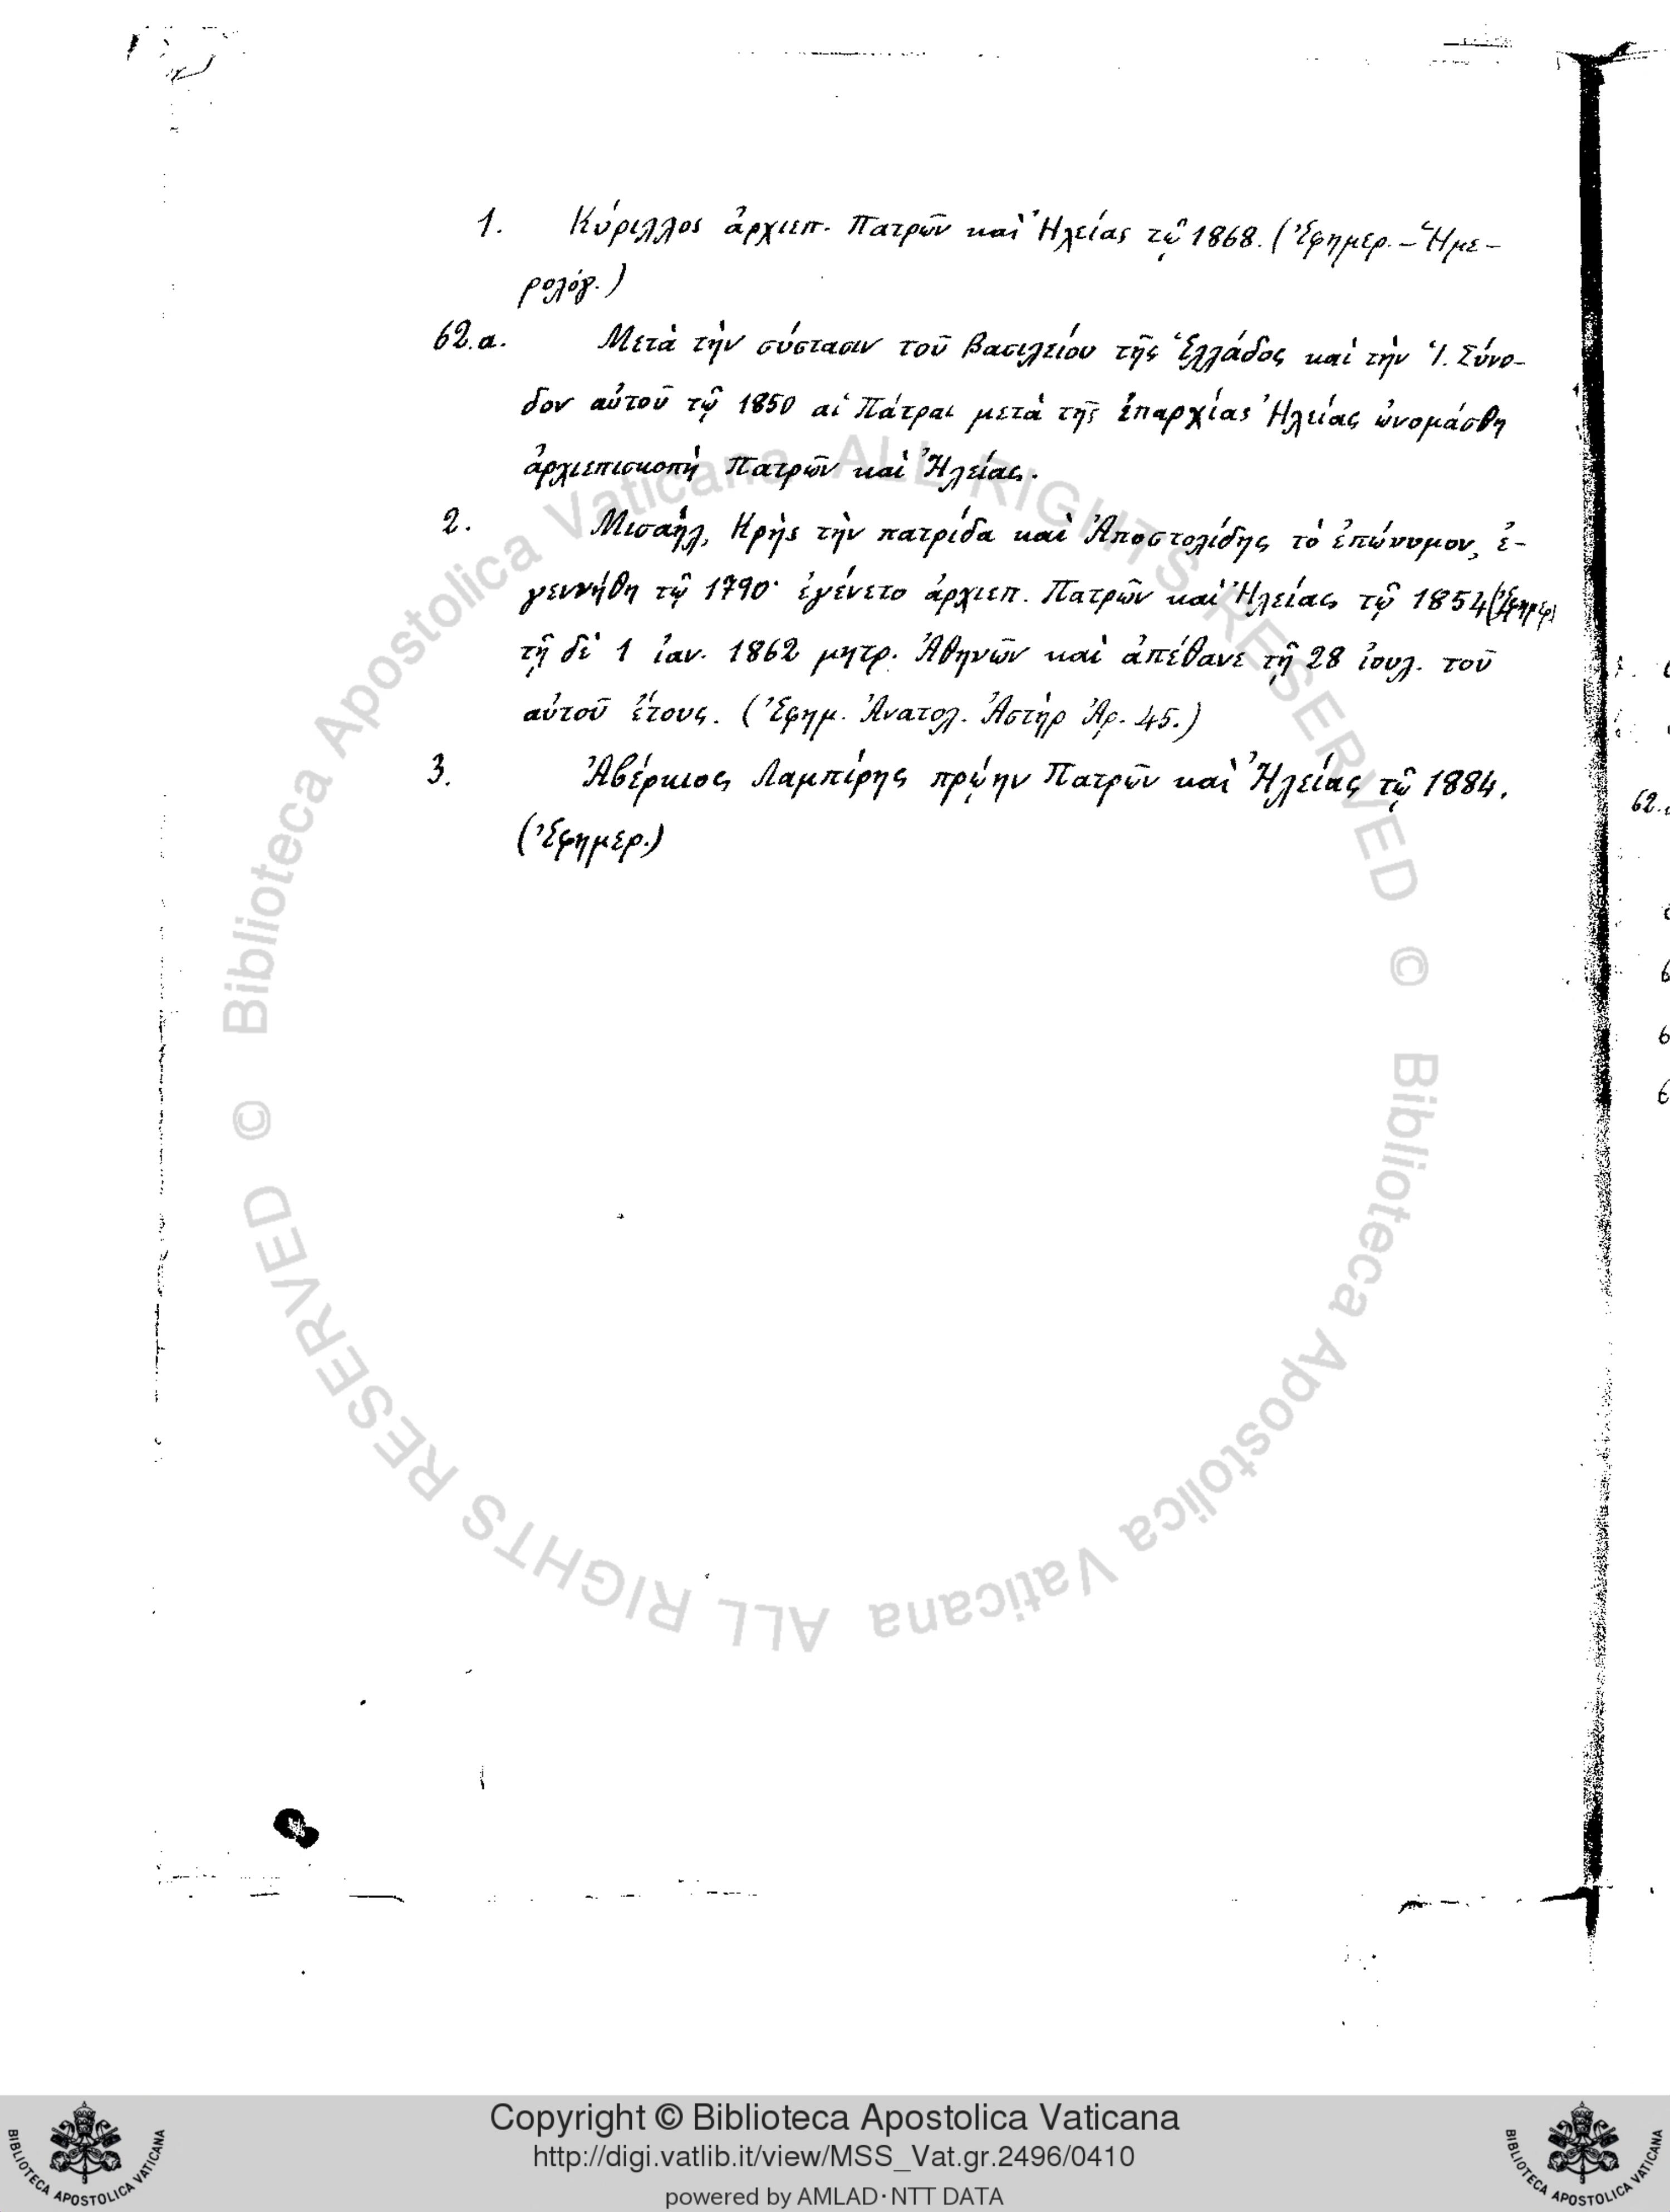 1. Κύριλλος ἀρχιεπ. Πατρῶν καὶ Ἠλείας τῷ 1868. (Ἐφημερ. – Ἡμε-
ρολόγ.)
62.α. Μετὰ τὴν σύστασιν τοῦ Βασιλείου τῆς Ἑλλάδος καὶ τὴν Ἱ. Σύνο-
δον αὐτοῦ τῷ 1850 αἱ Πάτραι μετὰ τῆς ἐπαρχίας Ἠλείας ὠνομάσθη
ἀρχιεπισκοπὴ Πατρῶν καὶ Ἠλείας.
2. Μισαήλ, Κρὴς τὴν πατρίδα καὶ Ἀποστολίδης τὸ ἐπώνυμον, ἐ-
γεννήθη τῷ 1790· ἐγένετο ἀρχιεπ. Πατρῶν καὶ Ἠλείας τῷ 1854 (Ἐφημερ)
τῇ δὲ 1 ἰαν. 1862 μητρ. Ἀθηνῶν καὶ ἀπέθανε τῇ 28 ἰουλ. τοῦ
αὐτοῦ ἔτους. (Ἐφημ. Ἀνατολ. Ἀστὴρ Ἀρ. 45.)
3. Ἀβέρκιος Λαμπίρης πρῴην Πατρῶν καὶ Ἠλείας τῷ 1884.
(Ἐφημερ.)
62.
© Biblioteca Apostolica Vaticana ALL RIGHTS RESERVED
© Biblioteca Apostolica Vaticana ALL RIGHTS RESERVED
BIBLIOTECA APOSTOLICA VATICANA
Copyright © Biblioteca Apostolica Vaticana
http://digi.vatlib.it/view/MSS_Vat.gr.2496/0410
powered by AMLAD·NTT DATA
BIBLIOTECA APOSTOLICA VATICANA